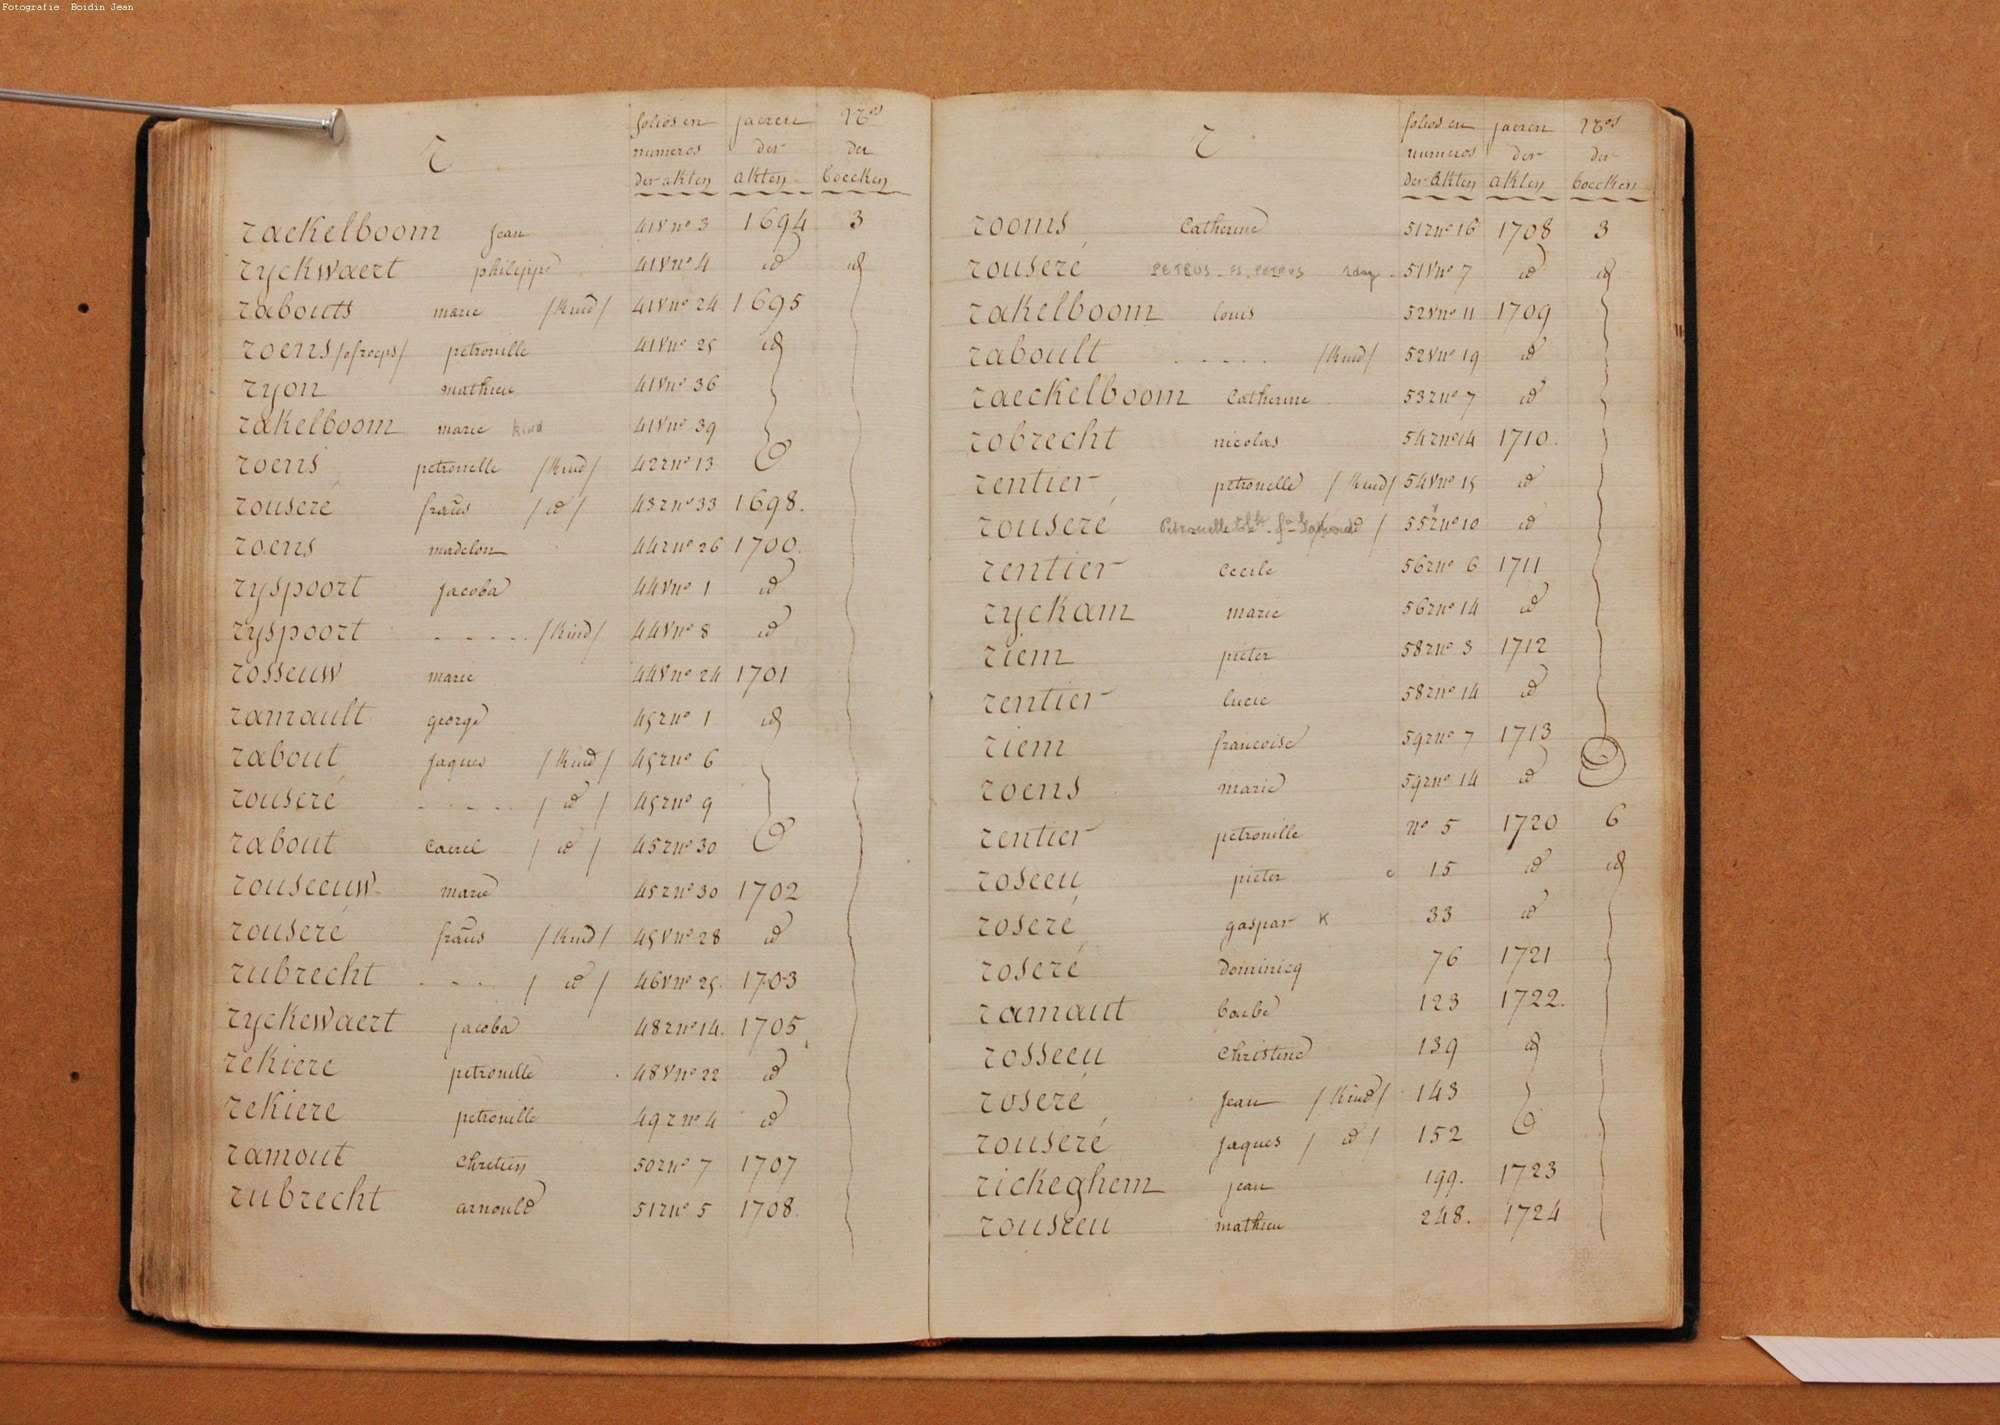 Fotografie Boidin Jean
r
folios en jaeren Nros
numeros der der
der akten akten boecken
rackelboom jean 41v no 3 1694 3
ryckwaert philippe 41v no 4 id id
rabouts marie /kind/ 41v no 24 1695
roens /of roeps/ petronille 41v no 25 id
ryon mathieu 41v no 36
rakelboom marie kind 41v no 39
roens petronelle /kind/ 42r no 13
rouseré frans /id/ 43r no 33 1698.
roens madelon 44r no 26 1700.
ryspoort jacoba 44v no 1 id
ryspoort . - . - . . /kind/ 44v no 8 id
rosseuw marie 44v no 24 1701
ramault george 45r no 1 id
rabout jaques /kind/ 45r no 6
rouseré - - . - . . / id / 45r no 9
rabout Caerel / id / 45r no 30
rouseeuw marie 45r no 30 1702
rouseré frans /kind/ 45v no 28 id
rubrecht . - . - . / id / 46v no 25. 1703
ryckewaert jacoba 48r no 14. 1705
rekiere petronille 48v no 22 id
rekiere petronille 49r no 4 id
ramout Chretien 50r no 7 1707
rubrecht arnould 51r no 5 1708.
r
folios en jaeren Nros
numeros der der
der akten akten boecken
rooms Catherine 51r no 16 1708 3
rouseré PETRUS - FS. PETRUS 51v no 7 id id
rakelboom louis 52v no 11 1709
raboult . - . - . - . /kind/ 52v no 19 id
raeckelboom Catherine 53r no 7 id
robrecht nicolas 54r no 14 1710.
rentier petronelle /kind/ 54v no 15 id
rouseré Petronelle / 55r no 10 id
rentier Cecile 56r no 6 1711
ryckam marie 56r no 14 id
riem pieter 58r no 3 1712
rentier lucie 58r no 14 id
riem francoise 59r no 7 1713
roens marie 59r no 14 id
rentier petronille no 5 1720 6
roseeu pieter 15 id id
roseré gaspar K 33 id
roseré Dominicq 76 1721
ramaut barbe 123 1722.
rosseeu Christine 139 id
roseré jean /kind/ 143
rouseré jaques / id / 152
rickeghem jean 199. 1723
rouseeu mathieu 248. 1724